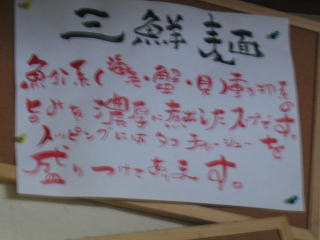 三鮮麺
魚介系(海老・蟹・貝)重ね技の
旨みを濃厚に煮出したスープです。
トッピングにはタコチャーシューを
盛りつけてあります。